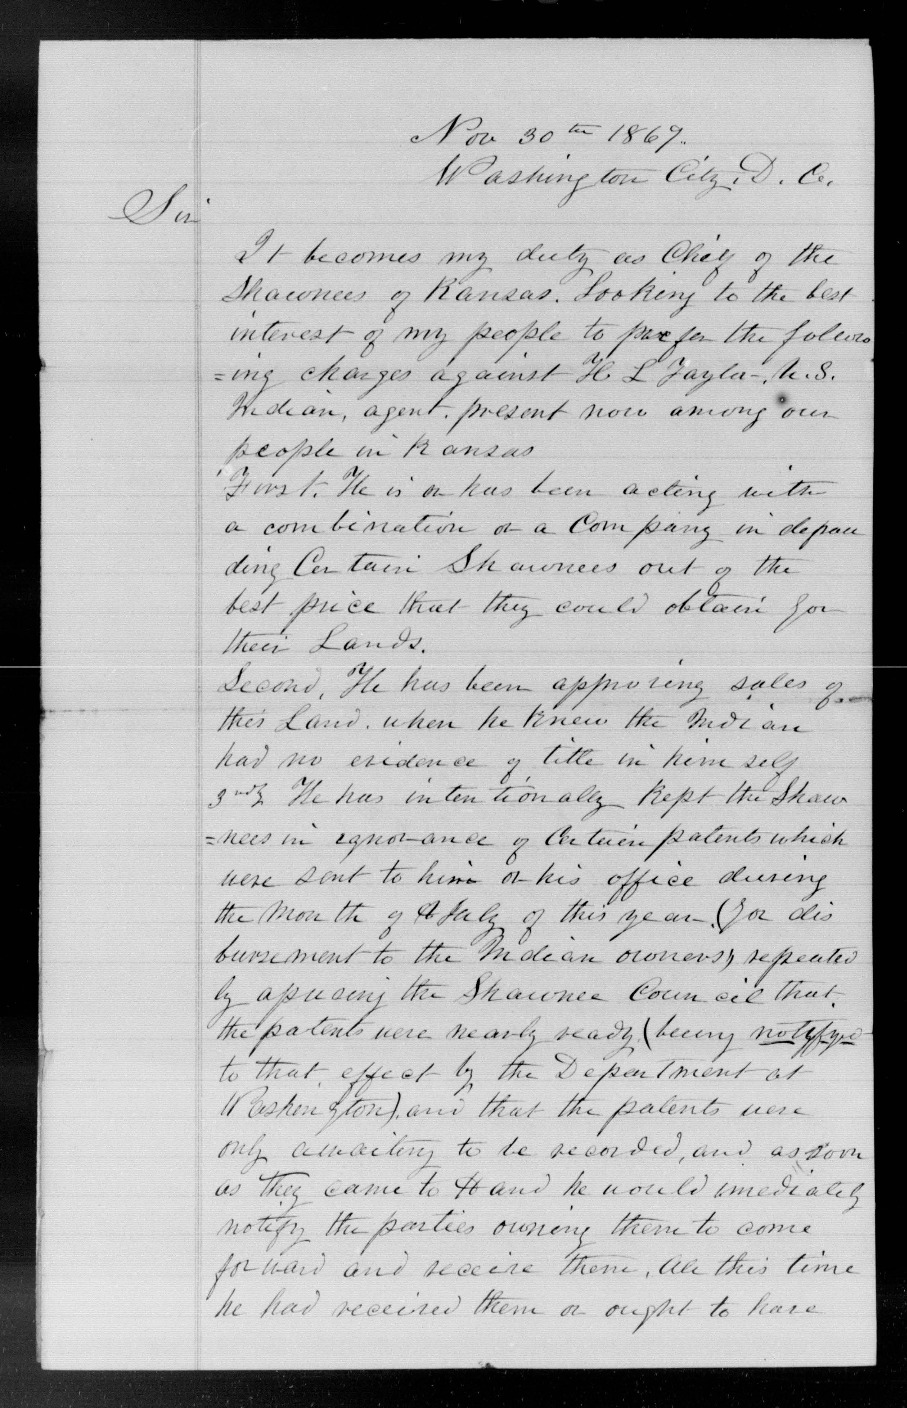 Nov 30th 1869.
Washington City, D. C.
Sir
It becomes my duty as Chief of the
Shawnees of Kansas. Looking to the best
interest of my people to prefer the follow
=ing charges against H L Taylor, U.S.
Indian, agent. present now among our
people in Kansas
First. He is or has been acting with
a combination or a Company in defrau
ding Certain Shawnees out of the
best price that they could obtain for
their Lands.
Second, He has been approving sales of
this Land. when he knew the Indian
had no evidence of title in him self
3rdly He has intentionally Kept the Shaw
=nees in ignorance of Certain patents which
were sent to him or his office during
the Month of July of this year, (for dis
bursement to the Indian owners) repeated
ly apusing the Shawnee Council that.
the patents were nearly ready, (being notifyed
to that effect by the Department at
Washington), and that the patents were
only awaiting to be recorded, and as soon
as they came to Hand he would imediately
notify the parties owning them to come
forward and receive them, All this time
he had received them or ought to have